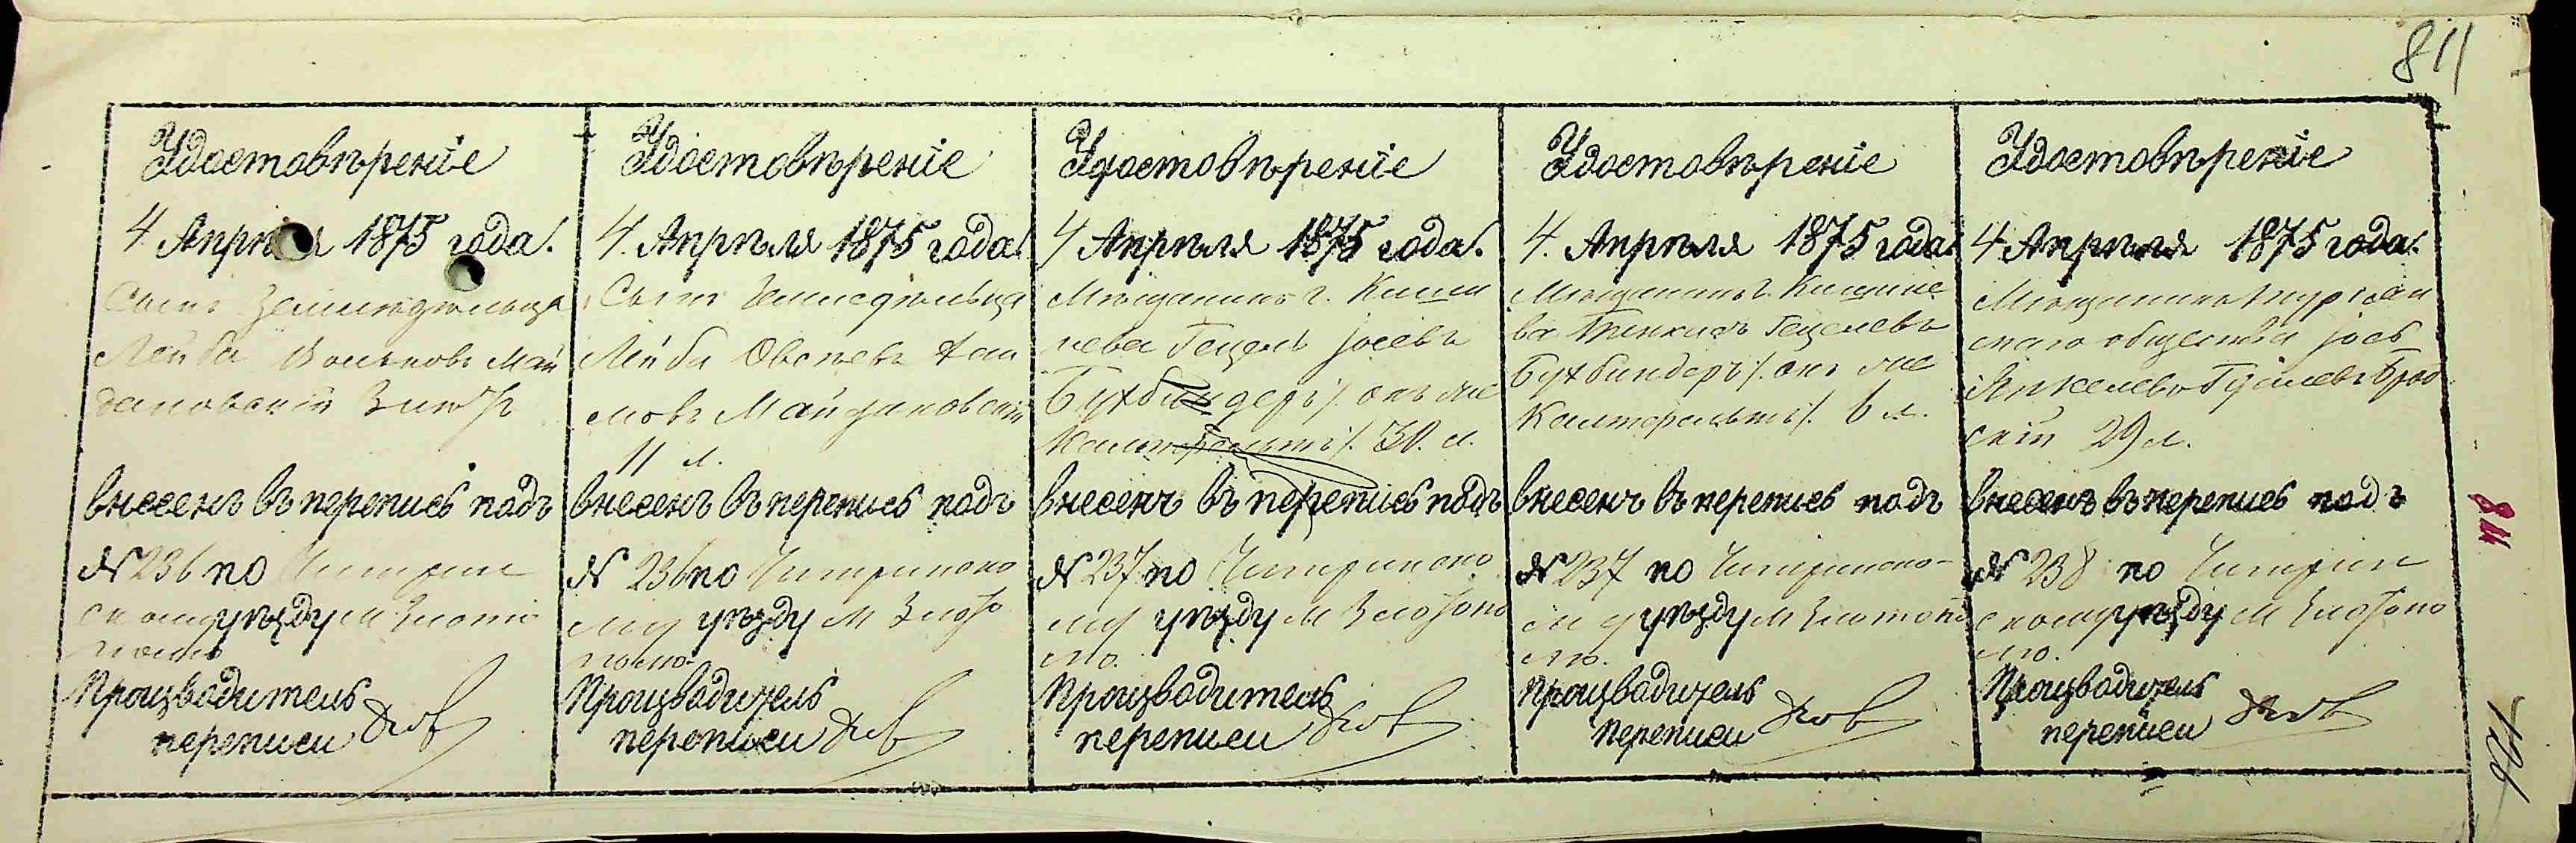 811
Удостовѣреніе
4 Апрѣля 1875 года.
Сынъ земледѣльца
Лейба Волковъ Май
дановскій
внесенъ въ перепись подъ
№ 236 по Чигрин
скому уѣзду м Злато
полю
Производитель
переписи
Удостовѣреніе
4 Апрѣля 1875 года.
Сынъ Земледѣльца
Лейба Овсѣевъ Хаи
мовъ Майдановскій
11 л.
внесенъ въ перепись подъ
№ 236 по Чигринско
му уѣзду м Злато
полю
Производитель
переписи
Удостовѣреніе
4 Апрѣля 1875 года.
Мѣщанинъ г. Киши
нева Гецель Іосевъ
Бухбиндеръ/. онъ же
30. л.
внесенъ въ перепись подъ
№ 237 по Чигринско
му уѣзду м Златопо
лю.
Производитель
переписи
Удостовѣреніе
4. Апрѣля 1875 года
Мѣщанинъ г. Кишине
ва Гецелевъ
Бухбиндеръ/. онъ же
6 л.
внесенъ въ перепись подъ
№ 237 по Чигринско-
му уѣзду м Златопо
лю.
Производитель
переписи
Удостовѣреніе
4 Апрѣля 1875 года.
Мѣщанинъ
скаго общества Іось
Янкелевъ Брод
скій 29 л.
внесенъ въ перепись подъ
№ 238 по Чигрин
скому уѣзду м Златопо
лю.
Производитель
переписи
811
126